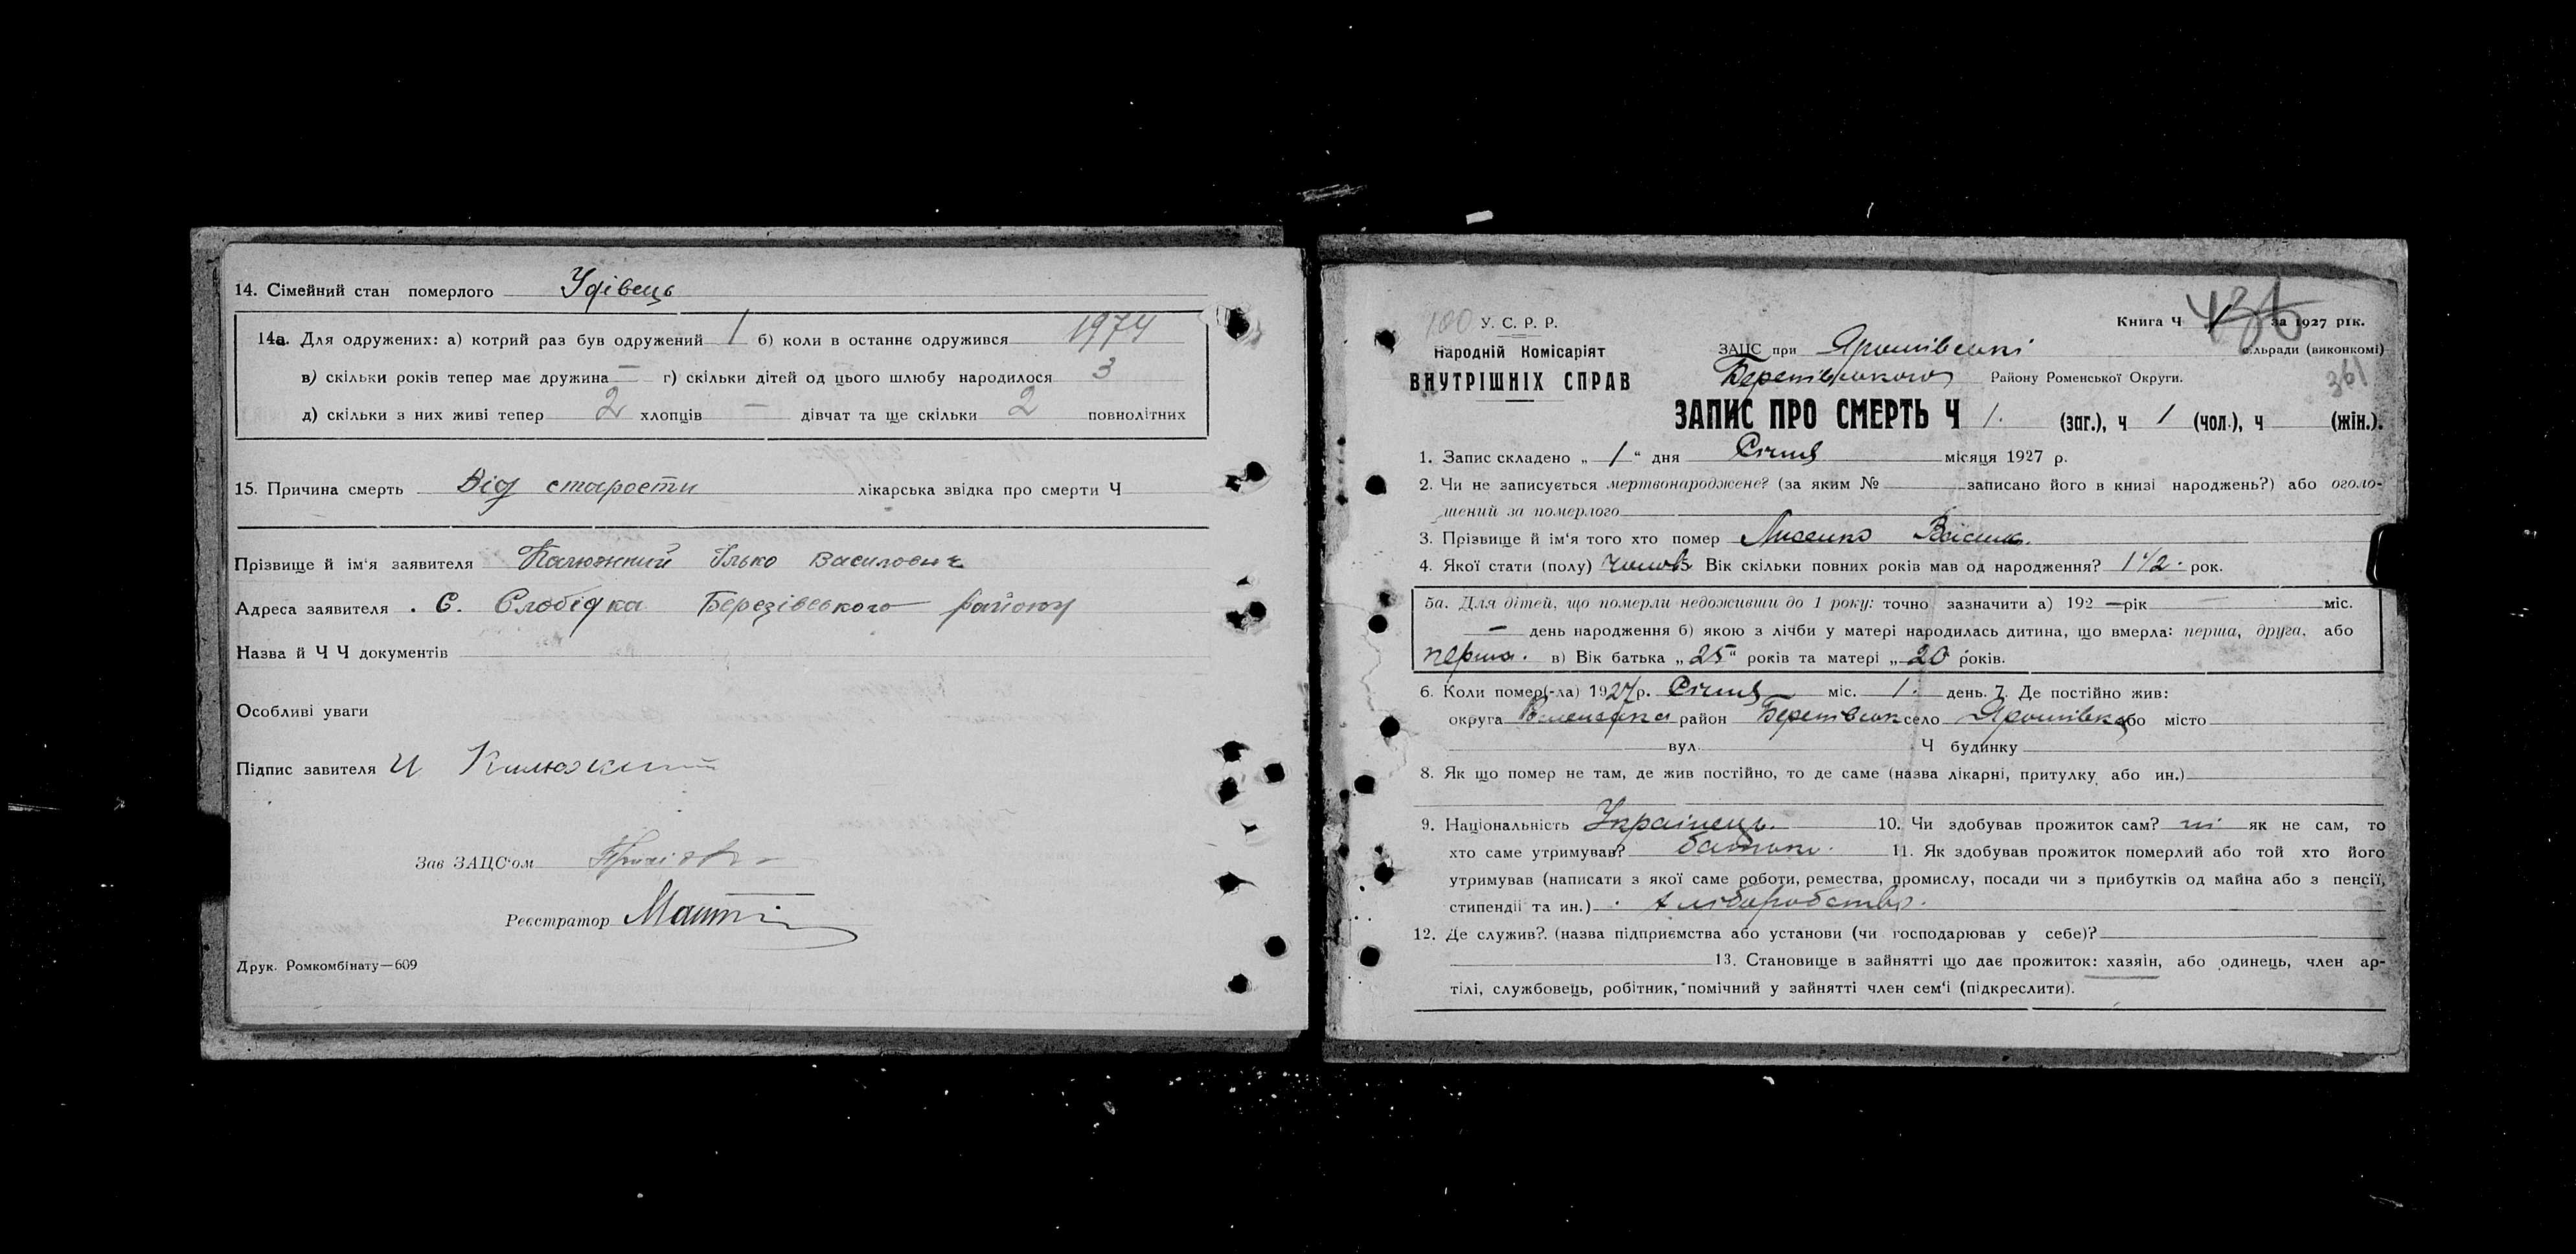 14. Сімейний стан померлого Удівець
14а. Для одружених: а) котрий раз був одружений 1 б) коли в останнє одружився 1974
в) скільки років тепер має дружина — г) скільки дітей од цього шлюбу народилося 3
д) скільки з них живі тепер 2 хлопців — дівчат та ще скільки 2 повнолітних
15. Причина смерть Від старости лікарська звідка про смерти Ч
Прізвище й ім'я заявителя Калюжний Ілько Василович
Адреса заявителя . С. Слобідка Березівського району
Назва й Ч Ч документів
Особливі уваги
Підпис завителя И Калюжний
Зав ЗАЦС'ом
Реєстратор
Друк. Ромкомбінату—609
100 У. С. Р. Р.
Народній Комісаріят
ВНУТРІШНІХ СПРАВ
Книга Ч 1 за 1927 рік.
ЗАЦС при Ярошівські сільради (виконкомі)
Району Роменської Округи.
361
ЗАПИС ПРО СМЕРТЬ Ч 1. (заг.), ч 1 (чол.), ч (жін.).
1. Запис складено „ 1 “ дня Січня місяця 1927 р.
2. Чи не записується мертвонароджене? (за яким № записано його в книзі народжень?) або оголо-
шений за померлого
3. Прізвище й ім'я того хто помер Лисенко
4. Якої стати (полу) Чолов Вік скільки повних років мав од народження? 1 1/2 . рок.
5а. Для дітей, що померли недоживши до 1 року: точно зазначити а) 192 — рік — міс.
— день народження б) якою з лічби у матері народилась дитина, що вмерла: перша, друга, або
перша. в) Вік батька „ 25 “ років та матері „ 20 років.
6. Коли помер(-ла) 1927 р. Січня міс. 1. день. 7. Де постійно жив:
округа район село Ярошівка або місто
вул. Ч будинку
8. Як що помер не там, де жив постійно, то де саме (назва лікарні, притулку або ин.)
9. Національність Українець. 10. Чи здобував прожиток сам? ні як не сам, то
хто саме утримував? батько. 11. Як здобував прожиток померлий або той хто його
утримував (написати з якої саме роботи, ремества, промислу, посади чи з прибутків од майна або з пенсії,
стипендії та ин.) хліборобство.
12. Де служив?. (назва підприємства або установи (чи господарював у себе)?
13. Становище в зайнятті що дає прожиток: хазяін, або одинець, член ар-
тілі, службовець, робітник, помічний у зайнятті член сем'ї (підкреслити).